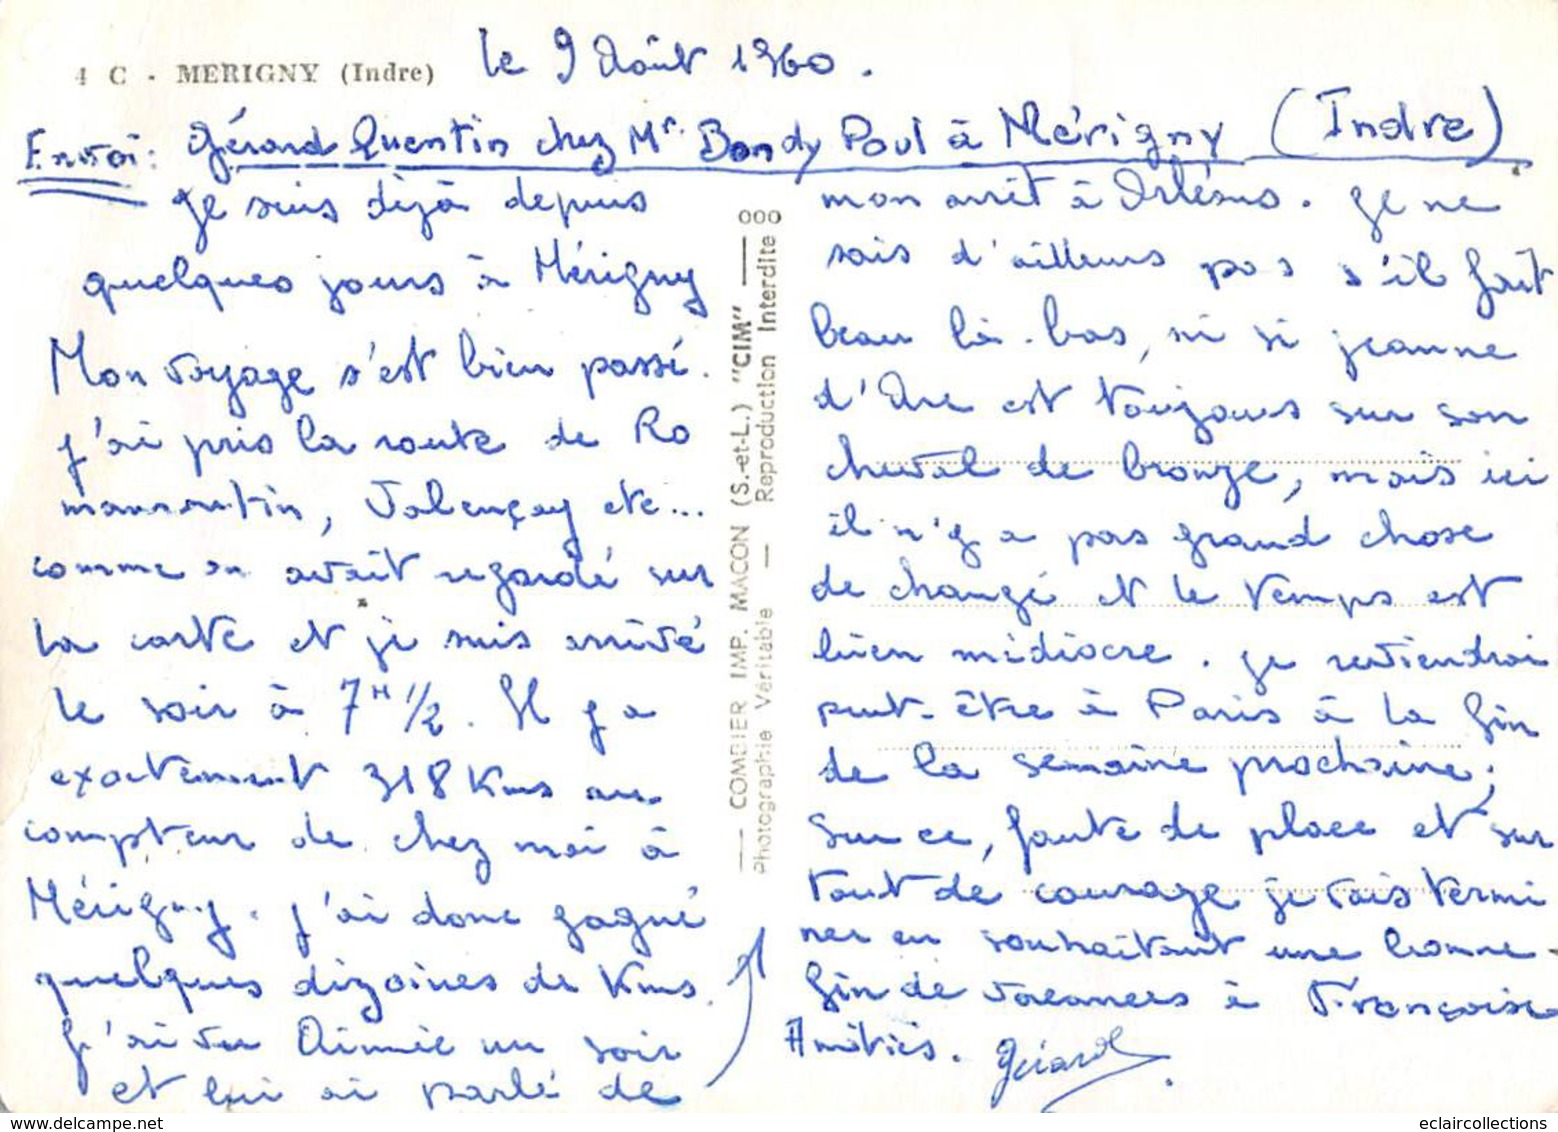 4 C - MERIGNY (Indre)
le 9 Août 1960.
Envoi: Gérard Quentin chez Mr. Bondy Paul à Mérigny (Indre)
Je suis déjà depuis
quelques jours à Mérigny
Mon voyage s'est bien passé.
J'ai pris la route de Ro
morantin, Valençay etc...
comme on avait regardé sur
la carte et je suis arrivé
le soir à 7H 1/2. Il y a
exactement 318 Kms au
compteur de chez moi à
Mérigny. J'ai donc gagné
quelques dizaines de Kms.
J'ai vu Aimée un soir
et lui ai parlé de
COMBIER IMP. MACON (S.-et-L.) "CIM"
Photographie Véritable — Reproduction Interdite
000
mon arrêt à Orléans. Je ne
sais d'ailleurs pas s'il fait
beau là-bas, ni si Jeanne
d'Arc est toujours sur son
cheval de bronze, mais ici
il n'y a pas grand chose
de changé et le temps est
bien médiocre. Je reviendrai
peut-être à Paris à la fin
de la semaine prochaine;
Sur ce, faute de place et sur
tout de courage je vais termi
ner en souhaitant une bonne
fin de vacances à Françoise
Amitiés. Gérard
eclaircollections